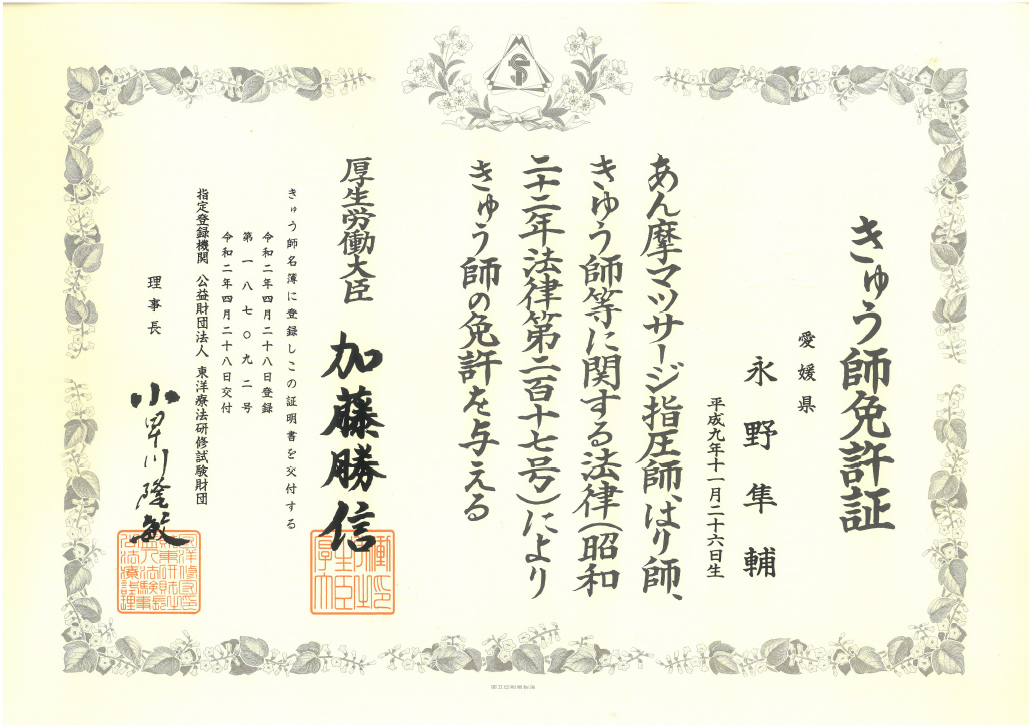 きゅう師免許証
愛媛県
永野隼輔
平成九年十一月二十六日生
あん摩マツサージ指圧師、はり師、
きゆう師等に関する法律(昭和
二十二年法律第二百十七号)により
きゅう師の免許を与える
厚生労働大臣 加藤勝信
きゅう師名簿に登録しこの証明書を交付する
令和二年四月二十八日登録
第一八七〇九二号
令和二年四月二十八日交付
指定登録機関 公益財団法人 東洋療法研修試験財団
理事長 小川隆敏